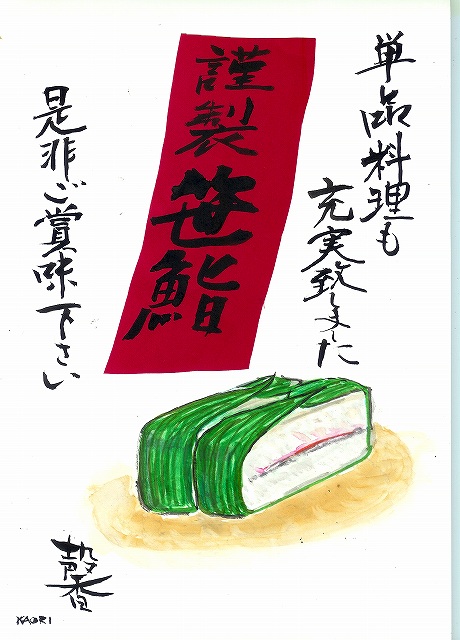 単品料理も
充実致しました
謹製笹鮨
是非ご賞味下さい
馨
KAORI